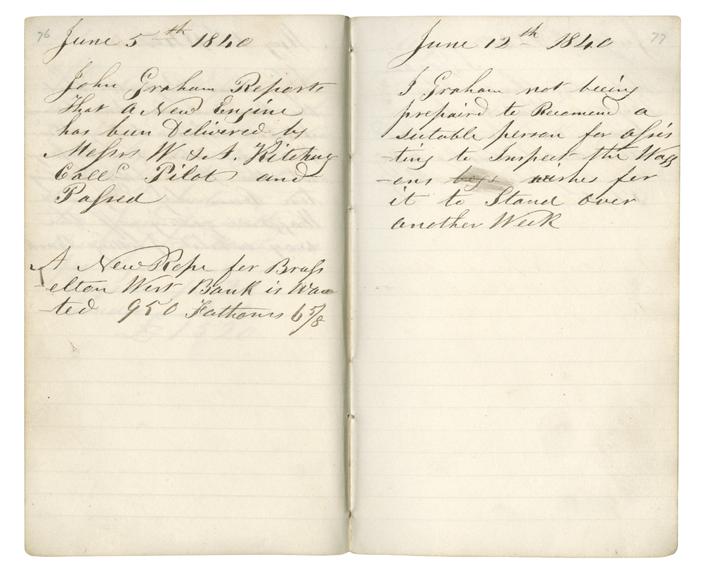 76
June 5th 1840
John Graham Reports
that a New Engine
has been Delivered by
Messrs W & A. Kitching
Calld Pilot and
Passed
A New Rope for Brass
-elton West Bank is Wan
-ted 950 Fathoms 6 5/8
77
June 12th 1840
J Graham not being
prepaird to Recomend a
suitable person for assis
-ting to Inspect the Wagg
-ons wishes for
it to Stand over
another Week